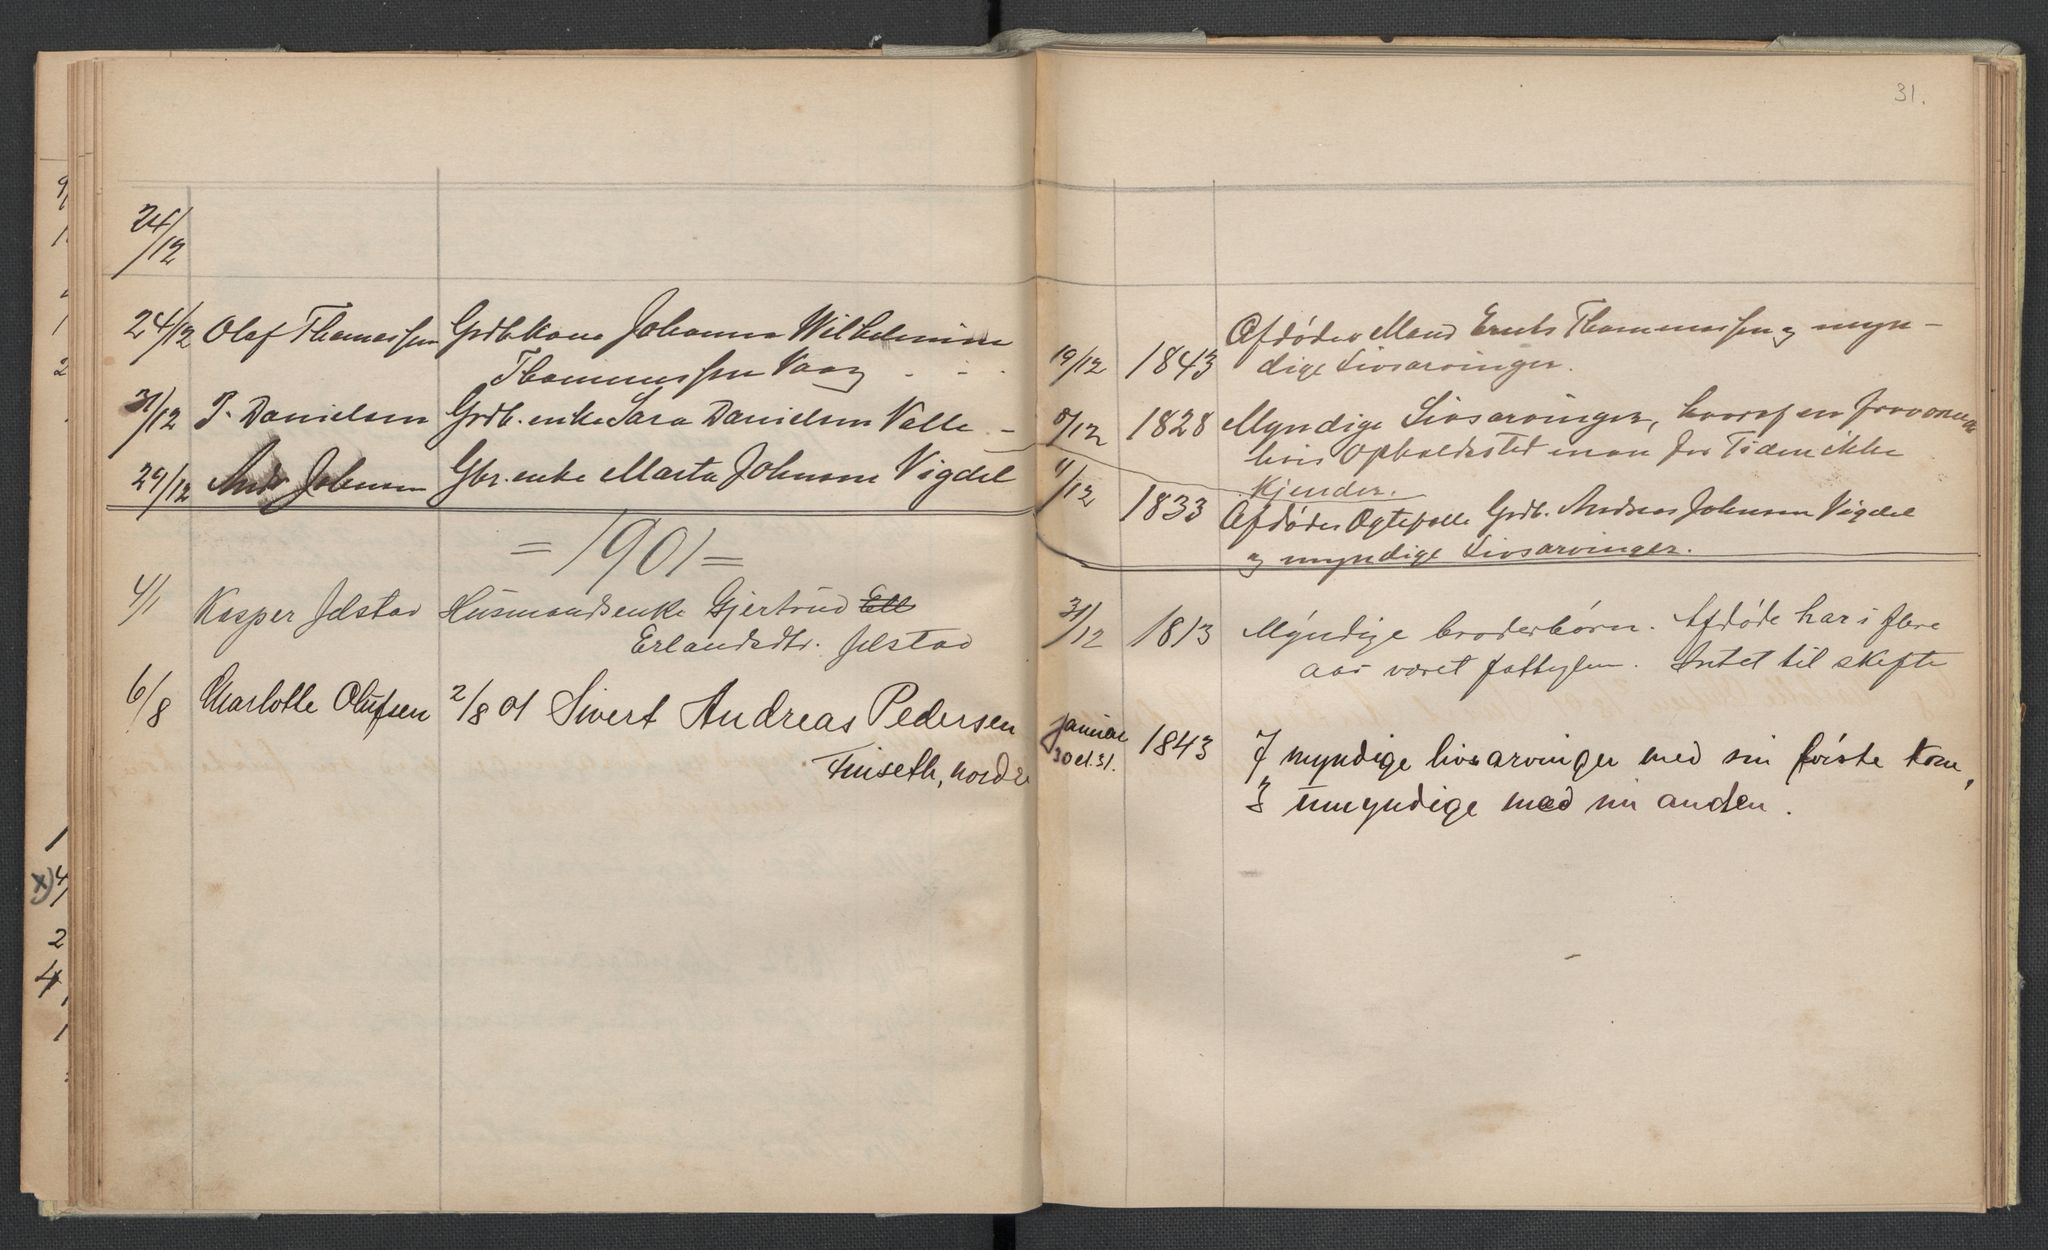 31.
24/12
24/12 Olaf Thomassen Grdb. kone Johanna Wilhelmine
Thommessen Vaag - - -
31/12 P. Danielsen Grdb. enke Sara Danielsen Valle -
29/12 Andr. Johnsen Gbr. enke Marta Johnsen Vigdel
= 1901 =
4/1 Kasper Jelstad Husmandsenke Gjertrud Ell
Erlandsdtr. Jelstad
6/8 Charlotte Olufsen 2/8 01 Sivert Andreas Pedersen
Finseth, nordre
Afdødes Mand Thommessen og myn-
19/12 1843 dige Livsarvinger.
8/12 1828 Myndige Livsarvinger, hvoraf en
hvis Opholdssted man for Tiden ikke
kjender.
4/12 1833 Afdødes Egtefelle Grdb. Andreas Johnsen Vigdel
og myndige Livsarvinger.
31/12 1813 Myndige broderbørn. Afdøde har i flere
aar været fattiglem. Intet til skifte
januar
30 el. 31. 1843 7 myndige livsarvinger med sin første kone,
3 umyndige med sin anden.
9/
1
2
1
x) 4/1
2
4
1